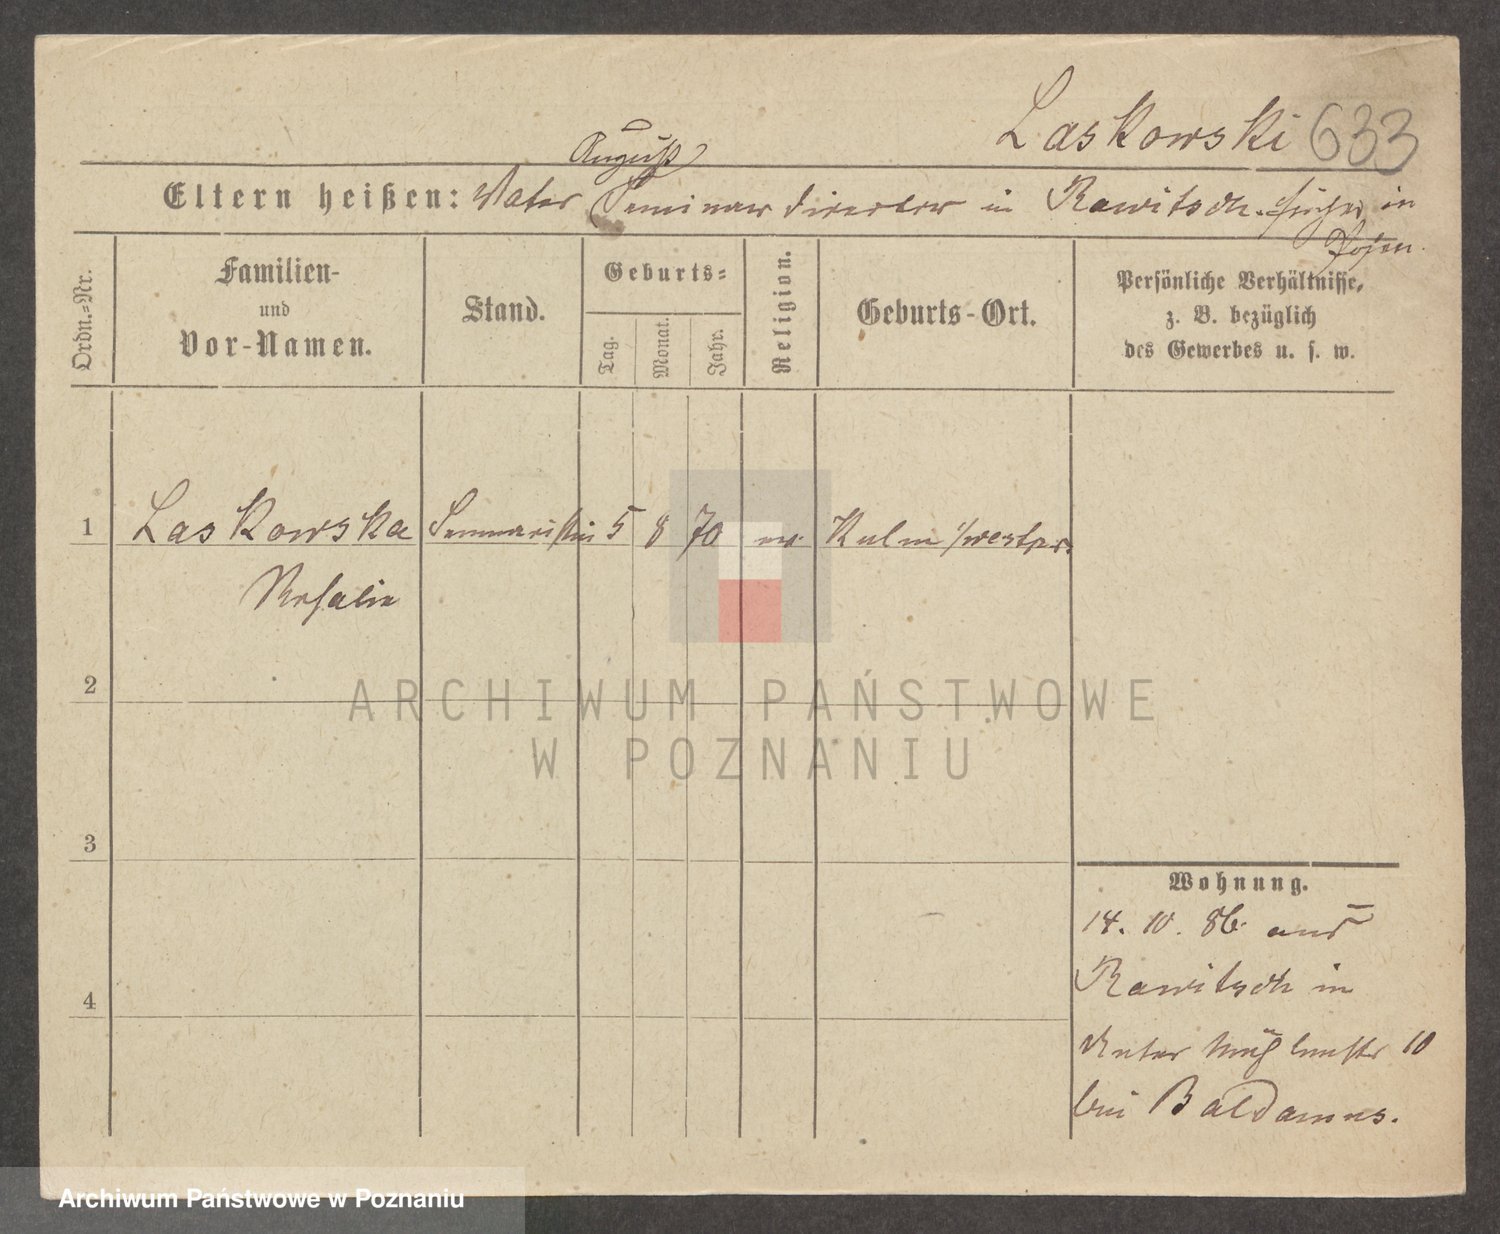 Laskowski 633
August
Eltern heißen: Vater Seminar director in Rawitsch. früher in
Posen.
Ordn.-Nr.
Familien-
und
Vor-Namen.
Stand.
Geburts-
Tag.
Monat.
Jahr.
Religion.
Geburts-Ort.
Persönliche Verhältnisse,
z. B. bezüglich
des Gewerbes u. s. w.
1 Laskowska Seminaristin 5 8 70 Kulm /westpr.
Rosalie
2
3
4
Wohnung.
14. 10. 86. aus
Rawitsch in
Unter mühlenstr 10
bei Baldamus.
ARCHIWUM PAŃSTWOWE
W POZNANIU
Archiwum Państwowe w Poznaniu